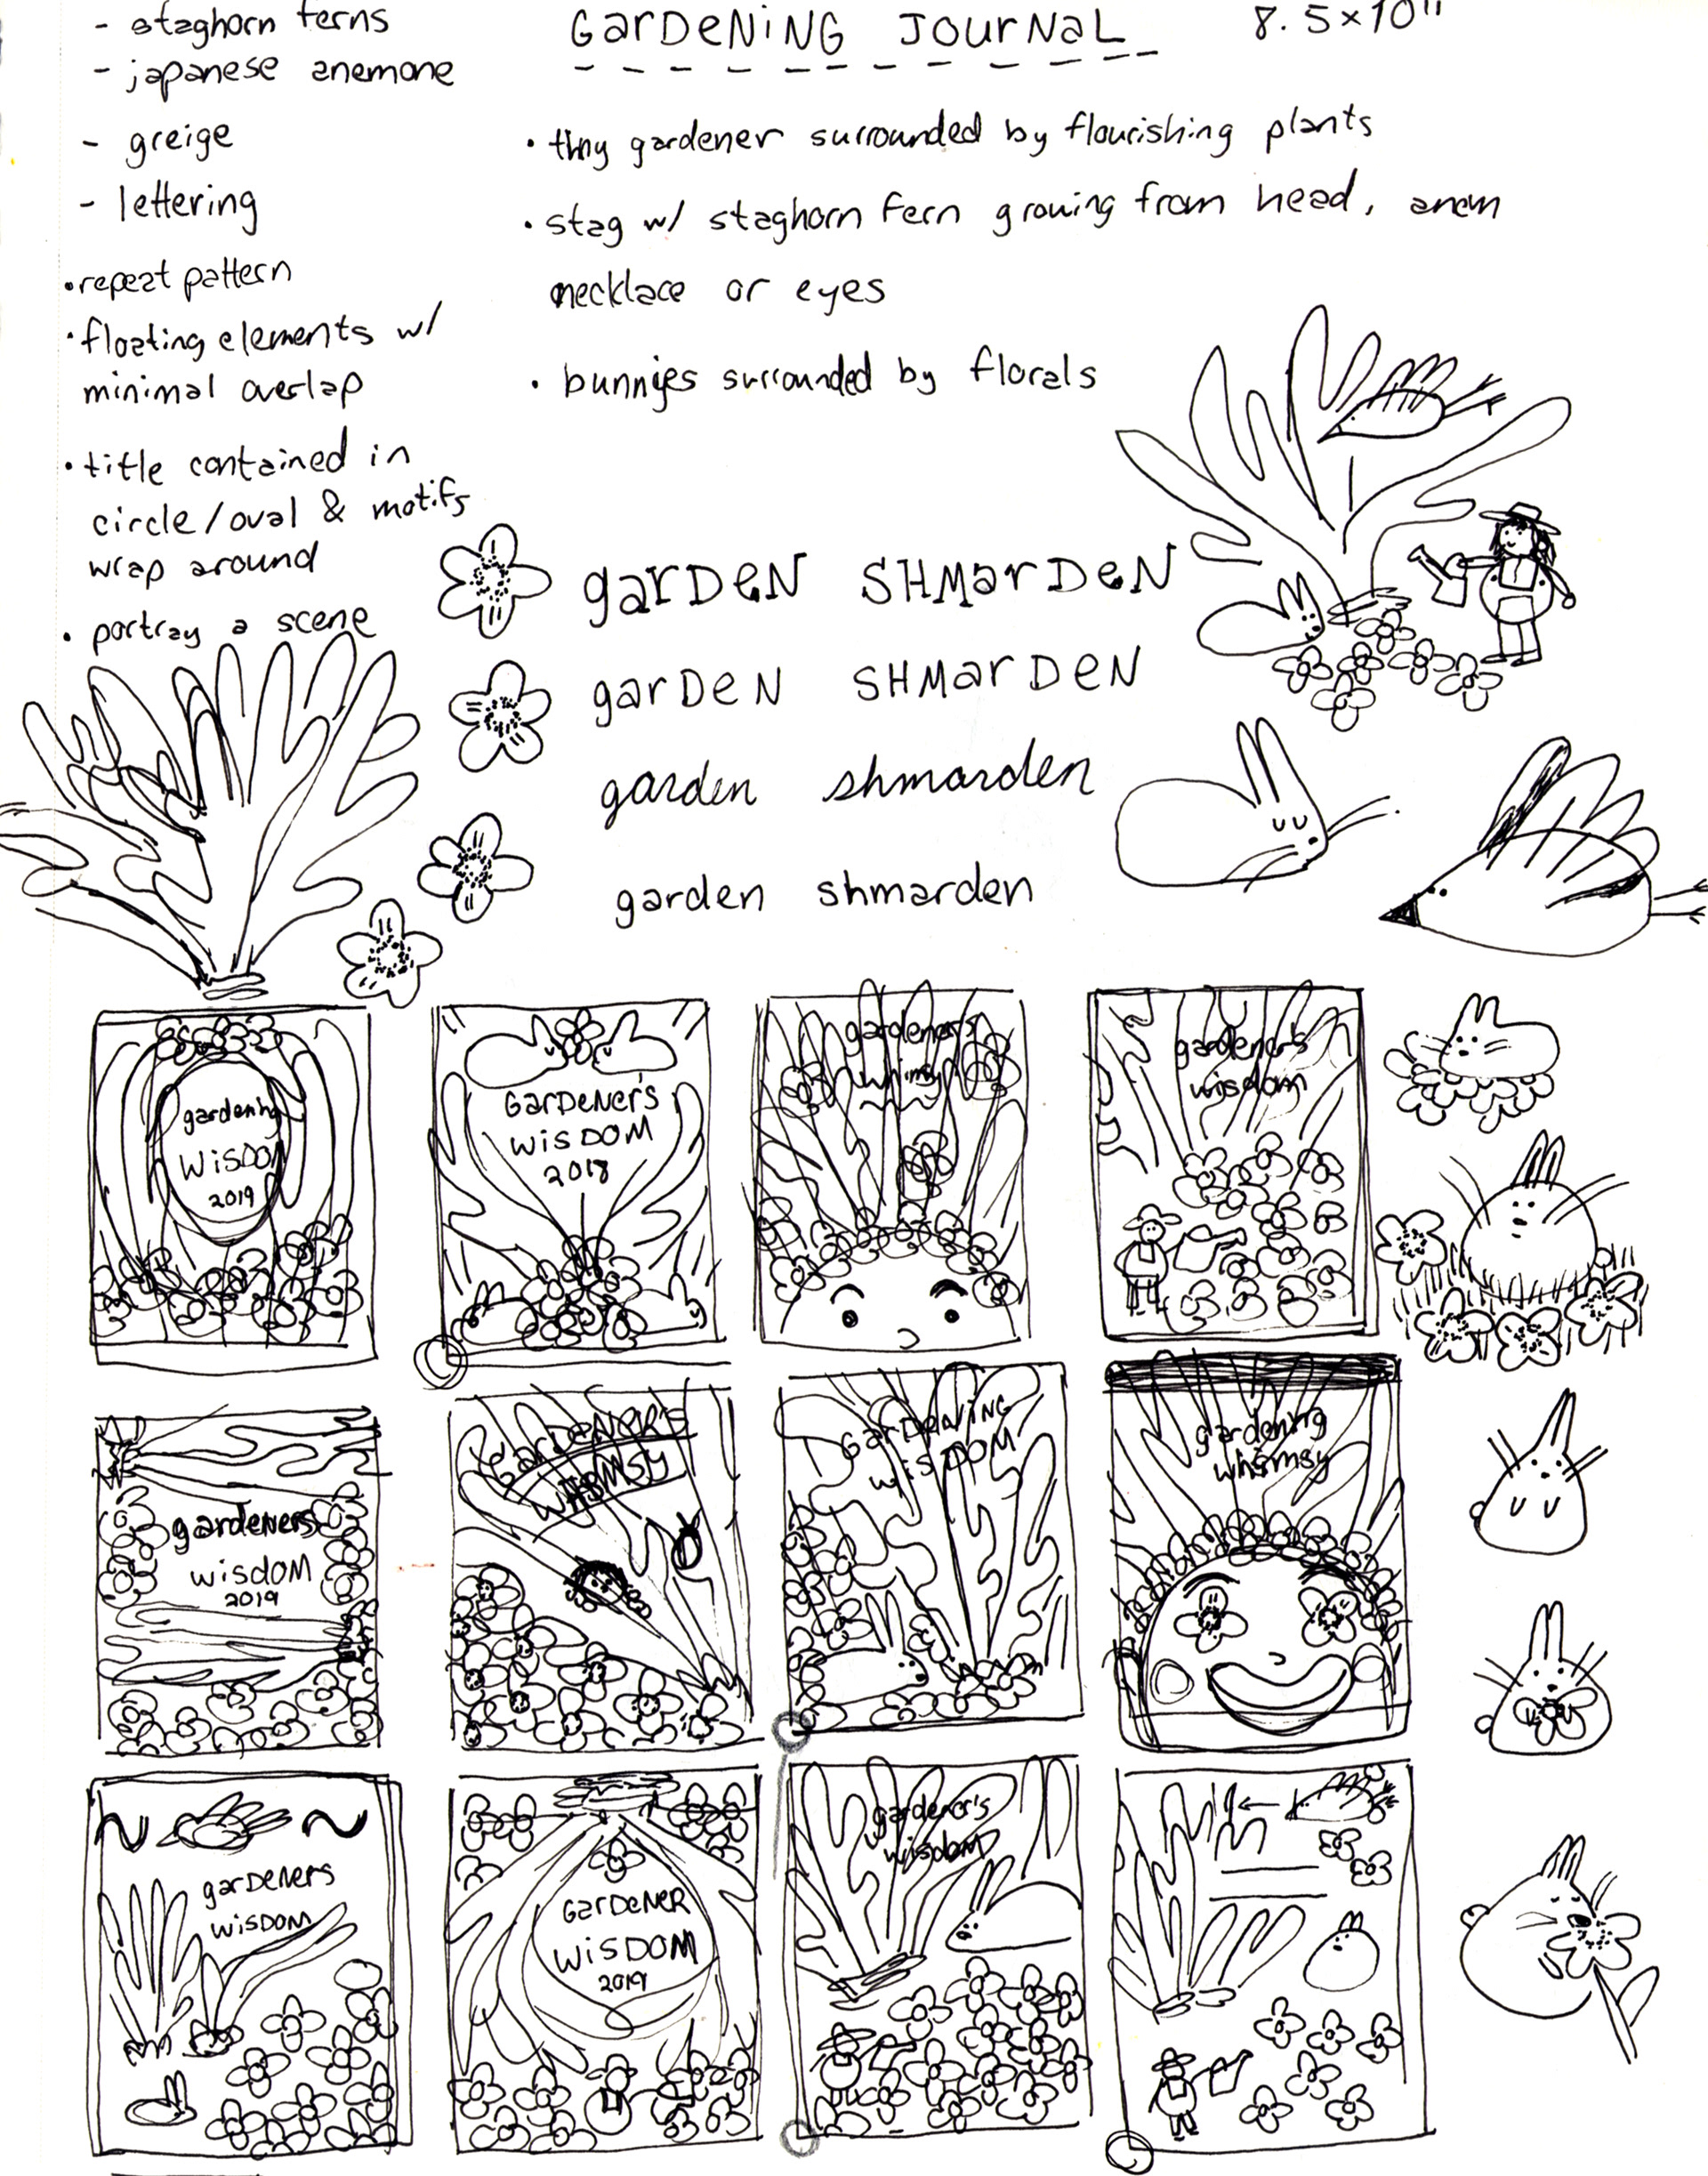 - staghorn ferns
- japanese anemone
- greige
- lettering
• repeat pattern
• floating elements w/
minimal overlap
• title contained in
circle/oval & motifs
wrap around
• portray a scene
GarDeNiNG JourNaL
8.5x10"
• tiny gardener surrounded by flourishing plants
• stag w/ staghorn fern growing from head, anem
necklace or eyes
• bunnies surrounded by florals
garDeN SHMarDeN
garDeN SHMarDeN
garden shmarden
garden shmarden
gardening
WiSDO
2019
GarDeNer's
WiSDOM
2018
gardener's
whimsy
gardener's
wisdom
gardeners
wisdom
2019
GarDeNer's
WHiMSY
GarDeNiNG
wiSDOM
gardening
whimsy
garDeners
wisDom
GarDeNer
WiSDOM
2019
gardener's
wisdom